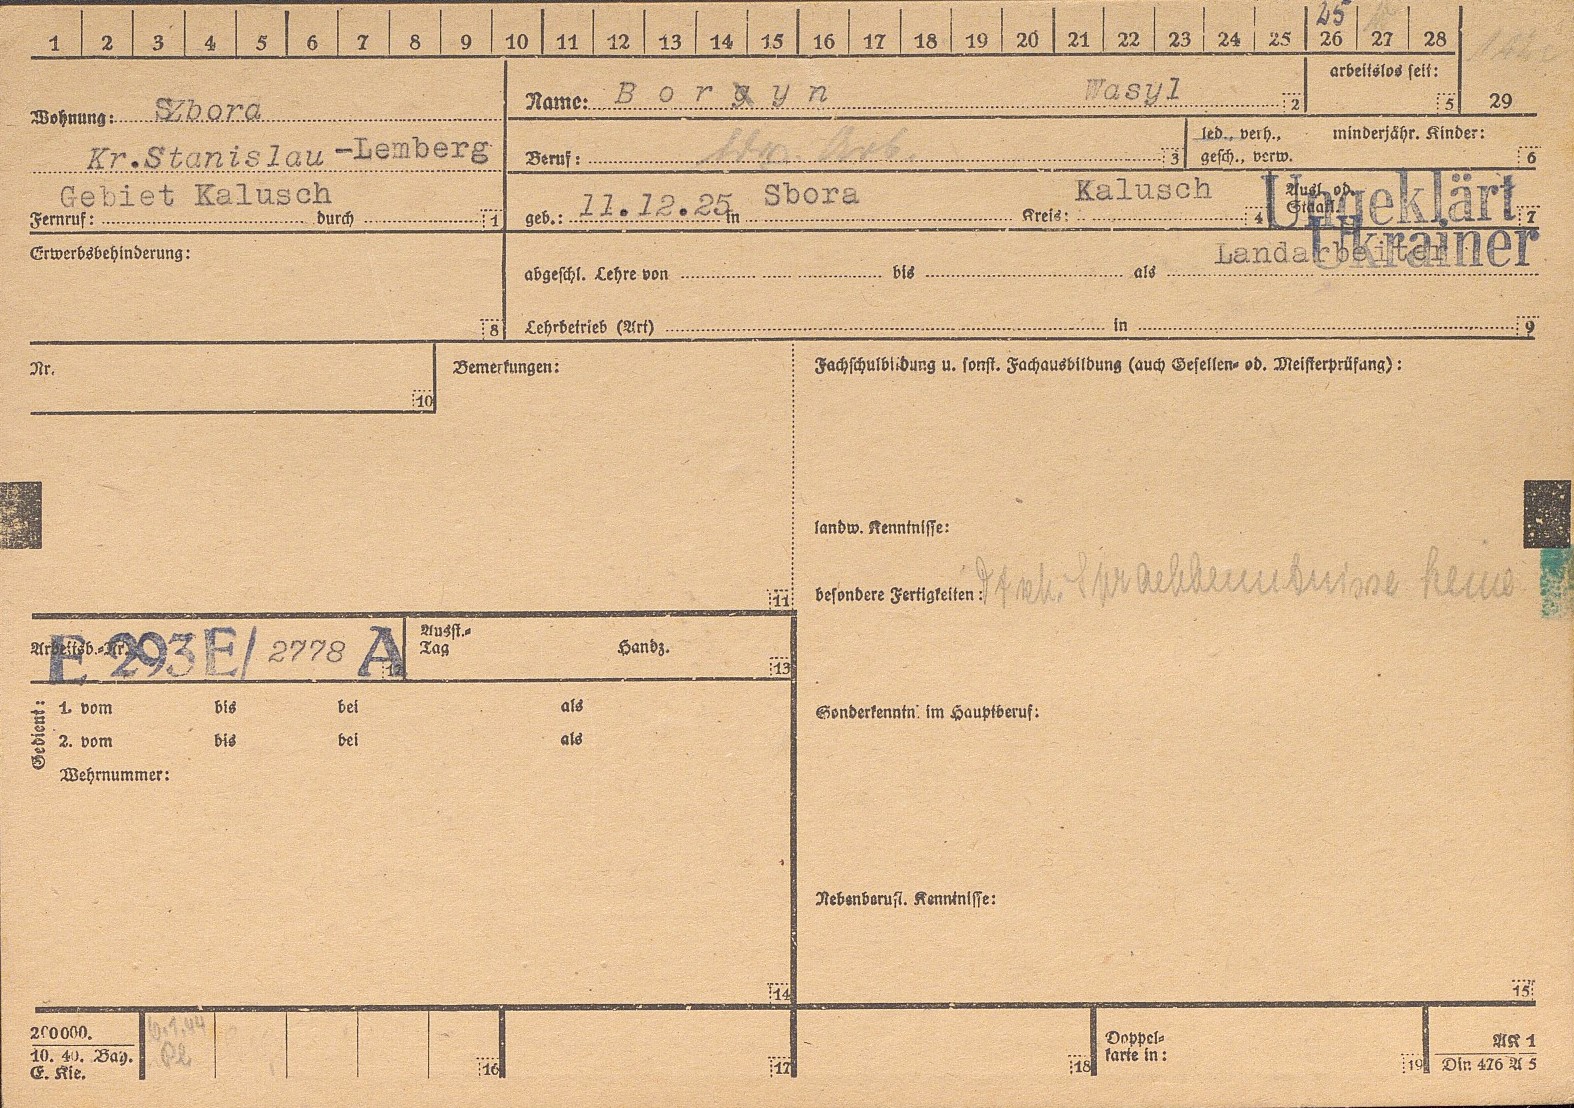 25
1 2 3 4 5 6 7 8 9 10 11 12 13 14 15 16 17 18 19 20 21 22 23 24 25 26 27 28
Wohnung: Sbora
Kr.Stanislau -Lemberg
Gebiet Kalusch
Fernruf: durch 1
Name: B o r y n Wasyl 2
arbeitslos seit: 5
29
Beruf: ldw. Arb. 3
led., verh., minderjähr. Kinder:
gesch., verw. 6
geb.: 11.12.25 in Sbora Kreis: Kalusch 4
Ausl. od.
Staatl. 7
Ungeklärt
Ukrainer
Erwerbsbehinderung: 8
Landarbeiter
abgeschl. Lehre von bis als
Lehrbetrieb (Art) in 9
Nr. 10
Bemerkungen: 11
Fachschulbildung u. sonst. Fachausbildung (auch Gesellen- od. Meisterprüfung):
landw. Kenntnisse:
besondere Fertigkeiten: Dtsch. Sprachkenntnisse keine
Arbeitsb.-Nr. E 293 E/ 2778 A 12
Ausst.-
Tag Handz. 13
Gedient:
1. vom bis bei als
2. vom bis bei als
Wehrnummer:
14
Sonderkenntn. im Hauptberuf:
Nebenberufl. Kenntnisse:
15
200000.
10. 40. Bay.
E. Kie.
16
17
18
Doppel-
karte in: 19
AK 1
Din 476 A 5